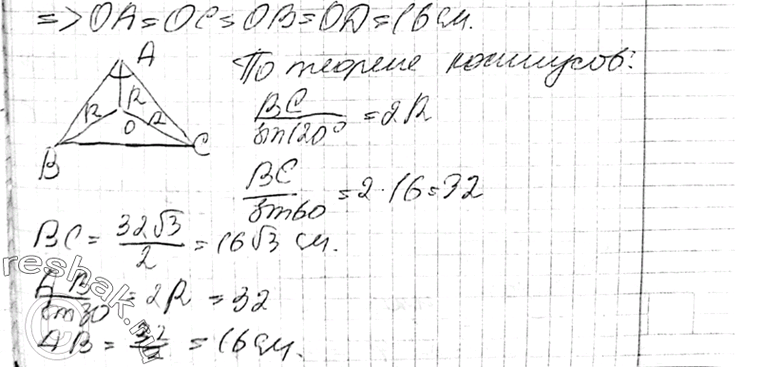 => OA = OC = OB = OD = 16 см.
A
По теореме косинусов:
R R R
O
B C
BC/sin120° = 2R
BC/sin60 = 2·16 = 32
BC = 32√3/2 = 16√3 см.
AB/sin30 = 2R = 32
AB = 32/2 = 16 см.
reshak.ru